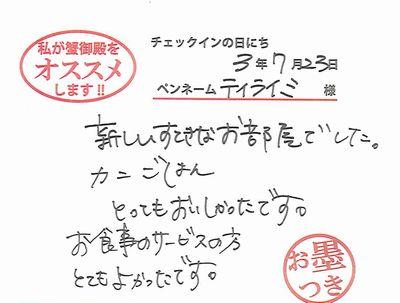 私が蟹御殿を
オススメ
します!!
チェックインの日にち
3年7月23日
ペンネーム ティライミ 様
新しいすてきなお部屋でした。
カニごはん
とってもおいしかったです。
お食事のサービスの方
とてもよかったです。
お墨
つき